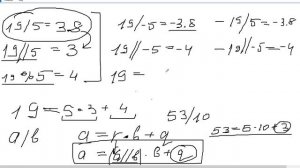 19/5 = 3.8
19//5 = 3
19 % 5 = 4
19/-5 = -3.8
19//-5 = -4
19 =
-19/5 = -3.8
-19//5 = -4
19 = 5 · 3 + 4
53/10
53 = 5 · 10 + 3
a/b
a = r · b + q
a = · b + q